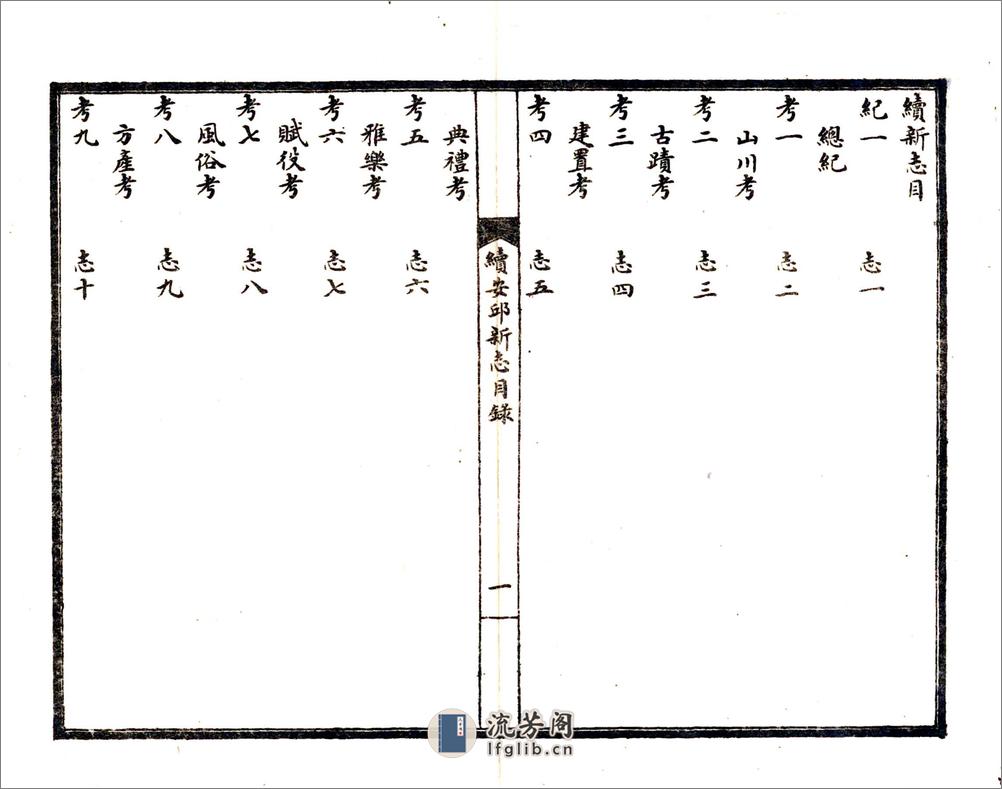 續新志目
紀一　志一
總紀
考一　志二
山川考
考二　志三
古蹟考
考三　志四
建置考
考四　志五
續安邱新志目錄
一
典禮考
考五　志六
雅樂考
考六　志七
賦役考
考七　志八
風俗考
考八　志九
方產考
考九　志十
流芳阁
lfglib.cn